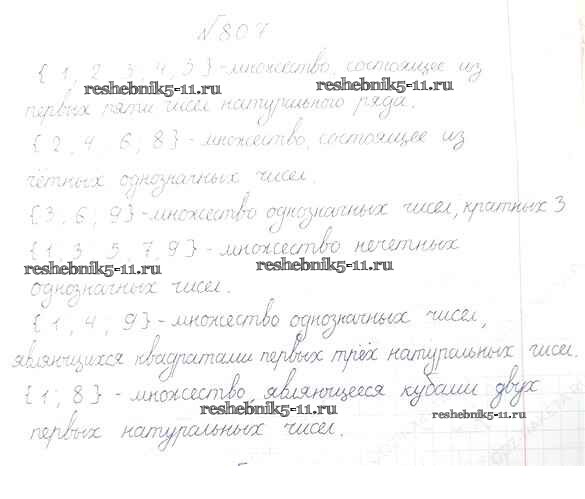 №807
{1, 2, 3, 4, 5} - множество, состоящее из
reshebnik5-11.ru reshebnik5-11.ru
первых пяти чисел натурального ряда.
{2, 4, 6, 8} - множество, состоящее из
чётных однозначных чисел.
{3; 6; 9} - множество однозначных чисел, кратных 3
{1, 3, 5, 7, 9} - множество нечетных
reshebnik5-11.ru reshebnik5-11.ru
однозначных чисел.
{1, 4; 9} - множество однозначных чисел,
являющихся квадратами первых трёх натуральных чисел.
{1; 8} - множество, являющееся кубами двух
reshebnik5-11.ru reshebnik5-11.ru
первых натуральных чисел.